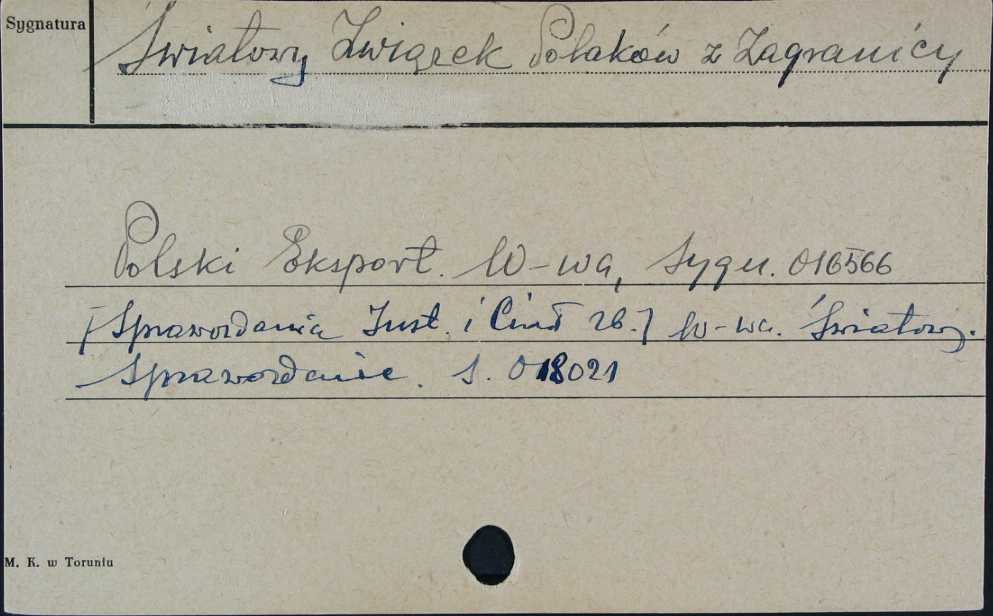 Sygnatura
Światowy Związek Polaków z Zagranicy
Polski Eksport. W-wa, Sygn. 016566
[Sprawozdania Inst. i Ciał zb.] W-wa. Światowy.
Sprawozdanie. S. 018021
M. K. w Toruniu